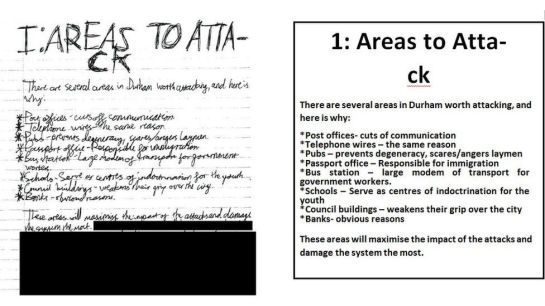 1: AREAS TO ATTA-
CK
There are several areas in Durham worth attacking, and here is
why.
*Post offices - cuts off communication
*Telephone wires - the same reason
*Pubs - prevents degeneracy, scares/angers laymen
*Passport office - Responsible for immigration
*Bus station - Large modem of transport for government
workers.
*Schools - Serve as centres of indoctrination for the youth
*Council buildings - weakens their grip over the city.
*Banks - obvious reasons.
These areas will maximise the impact of the attacks and damage
the system the most.
1: Areas to Atta-
ck
There are several areas in Durham worth attacking, and
here is why:
*Post offices- cuts of communication
*Telephone wires – the same reason
*Pubs – prevents degeneracy, scares/angers laymen
*Passport office – Responsible for immigration
*Bus station – large modem of transport for
government workers.
*Schools – Serve as centres of indoctrination for the
youth
*Council buildings – weakens their grip over the city
*Banks- obvious reasons
These areas will maximise the impact of the attacks and
damage the system the most.